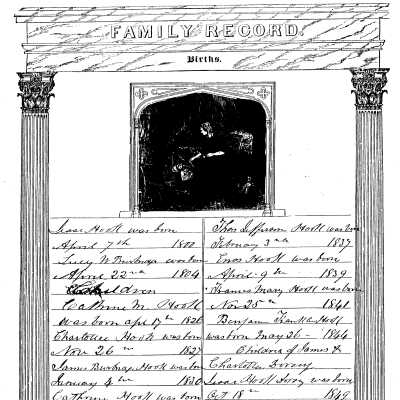 FAMILY RECORD.
Births.
Isaac Hooll was born
April 7th 1800
Lucy W Burbnap was born
Aprile 22nd 1804
Children
Cathrine M. Hooll
was born apr 17th 1826
Charlotee Hooll was born
Nov 26th 1827
James Burbnap Hooll was born
January 4th 1830
Cathrine Hooll was born
Thos Jefferson Hooll was born
Febuary 3rd 1837
Enos Hooll was born
April 9th 1839
Frances Mary Hooll was born
Nov 25th 1841
Benjamin Frankln Hooll
was born May 26 - 1844
Children of James &
Charlotee
Isaac Hooll was born
Oct 18th 1849